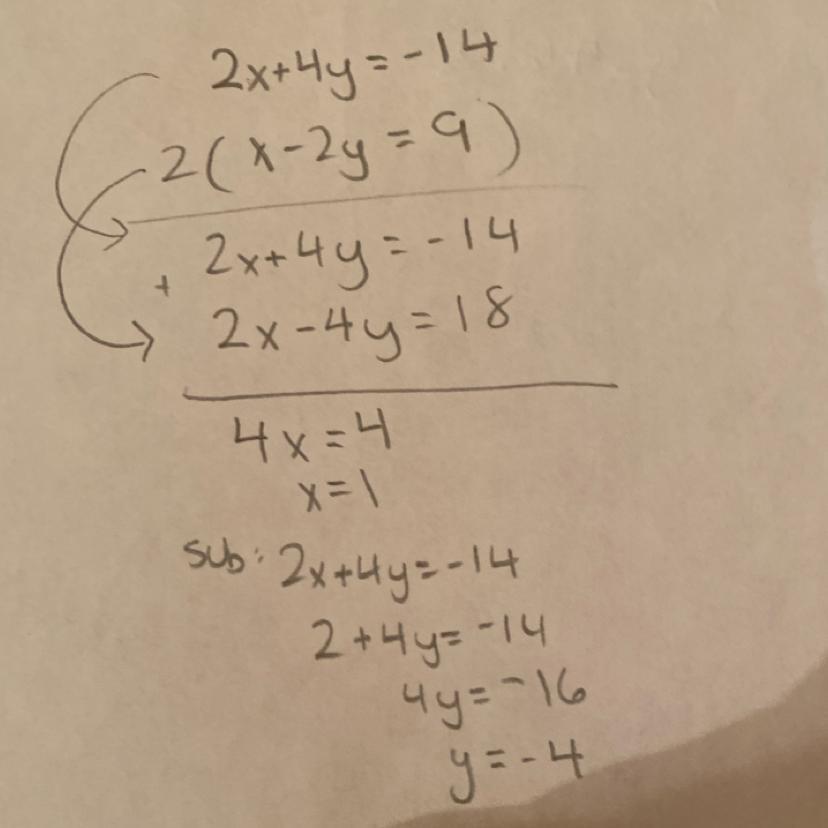 2x+4y=-14
2(x-2y=9)
2x+4y=-14
+
2x-4y=18
4x=4
x=1
sub: 2x+4y=-14
2+4y=-14
4y=-16
y=-4